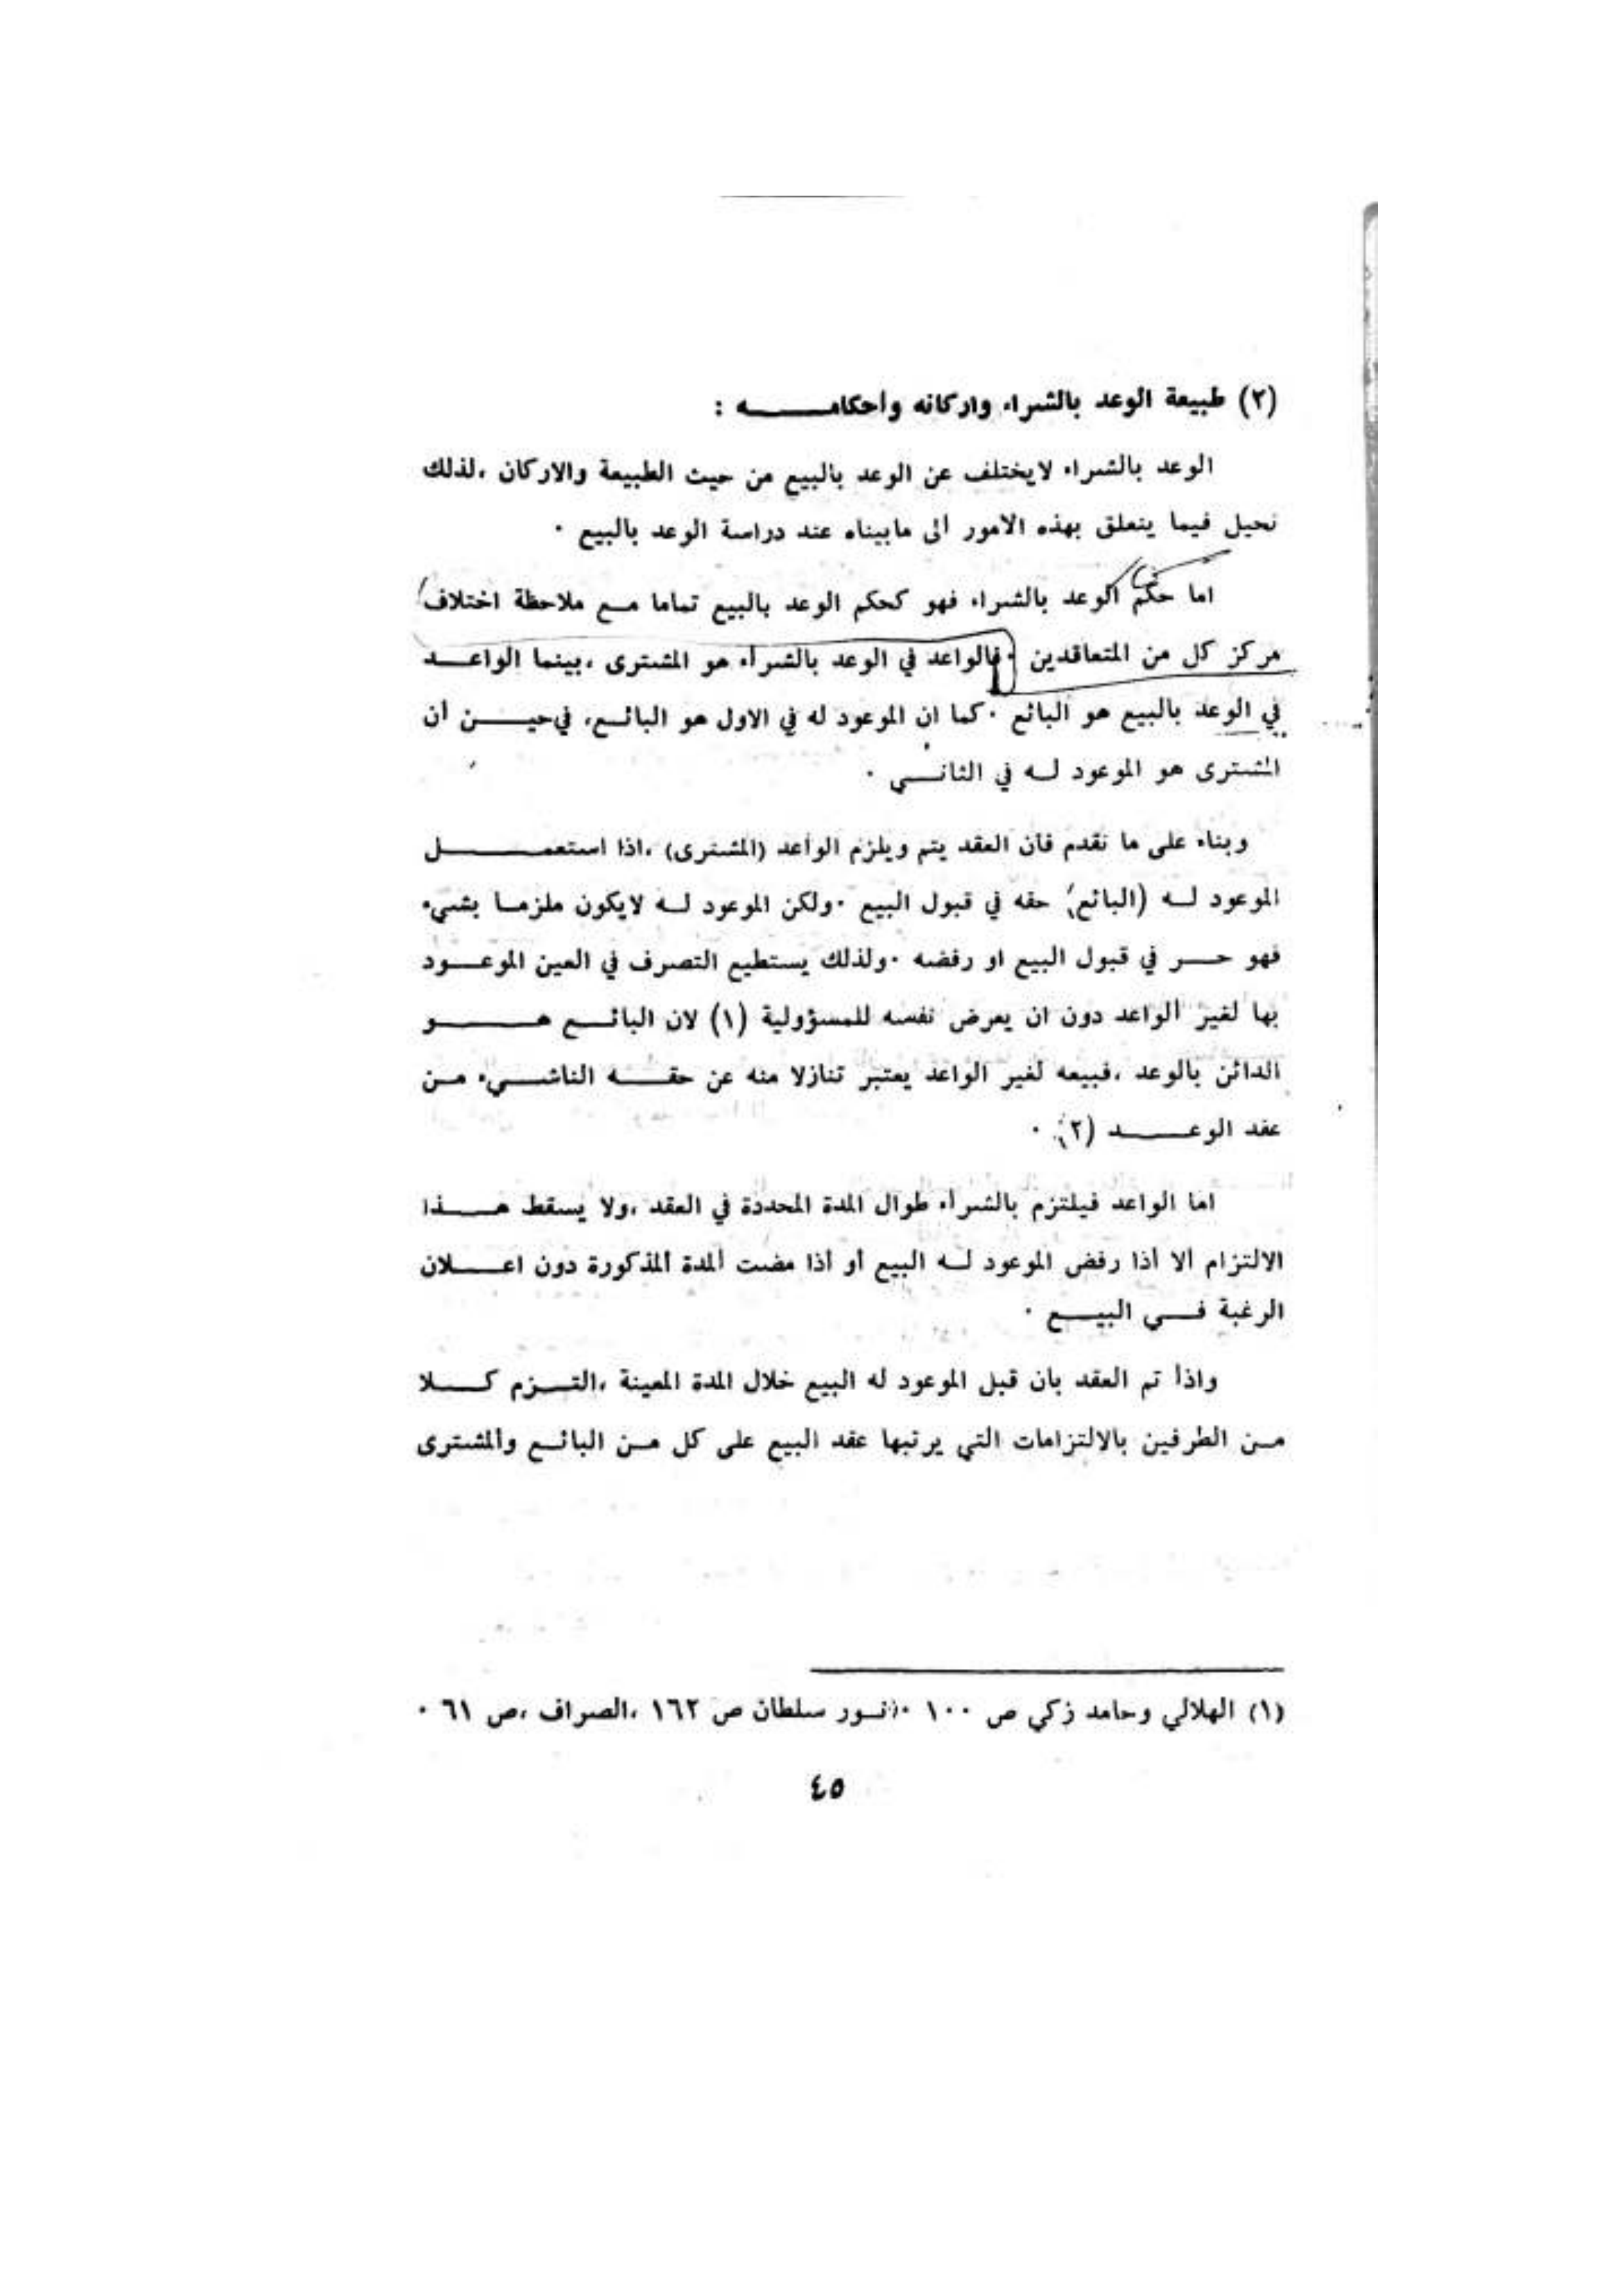 (٢) طبيعة الوعد بالشراء واركانه وأحكامه :
الوعد بالشراء لايختلف عن الوعد بالبيع من حيث الطبيعة والاركان ،لذلك
نحيل فيما يتعلق بهذه الامور الى مابيناه عند دراسة الوعد بالبيع ٠
اما حكم الوعد بالشراء فهو كحكم الوعد بالبيع تماما مع ملاحظة اختلاف
مركز كل من المتعاقدين ٠فالواعد في الوعد بالشراء هو المشترى ،بينما الواعد
في الوعد بالبيع هو البائع ٠كما ان الموعود له في الاول هو البائع، في حين أن
المشترى هو الموعود له في الثاني ٠
وبناء على ما تقدم فأن العقد يتم ويلزم الواعد (المشترى) ،اذا استعمل
الموعود له (البائع) حقه في قبول البيع ٠ولكن الموعود له لايكون ملزما بشيء
فهو حر في قبول البيع او رفضه ٠ولذلك يستطيع التصرف في العين الموعود
بها لغير الواعد دون ان يعرض نفسه للمسؤولية (١) لان البائع هو
الدائن بالوعد ،فبيعه لغير الواعد يعتبر تنازلا منه عن حقه الناشيء من
عقد الوعد (٢) ٠
اما الواعد فيلتزم بالشراء طوال المدة المحددة في العقد ،ولا يسقط هذا
الالتزام ألا أذا رفض الموعود له البيع أو أذا مضت المدة المذكورة دون اعلان
الرغبة في البيع ٠
واذا تم العقد بان قبل الموعود له البيع خلال المدة المعينة ،التزم كلا
من الطرفين بالالتزامات التي يرتبها عقد البيع على كل من البائع والمشترى
(١) الهلالي وحامد زكي ص ١٠٠ ٠انور سلطان ص ١٦٢ ،الصراف ،ص ٦١ ٠
٤٥